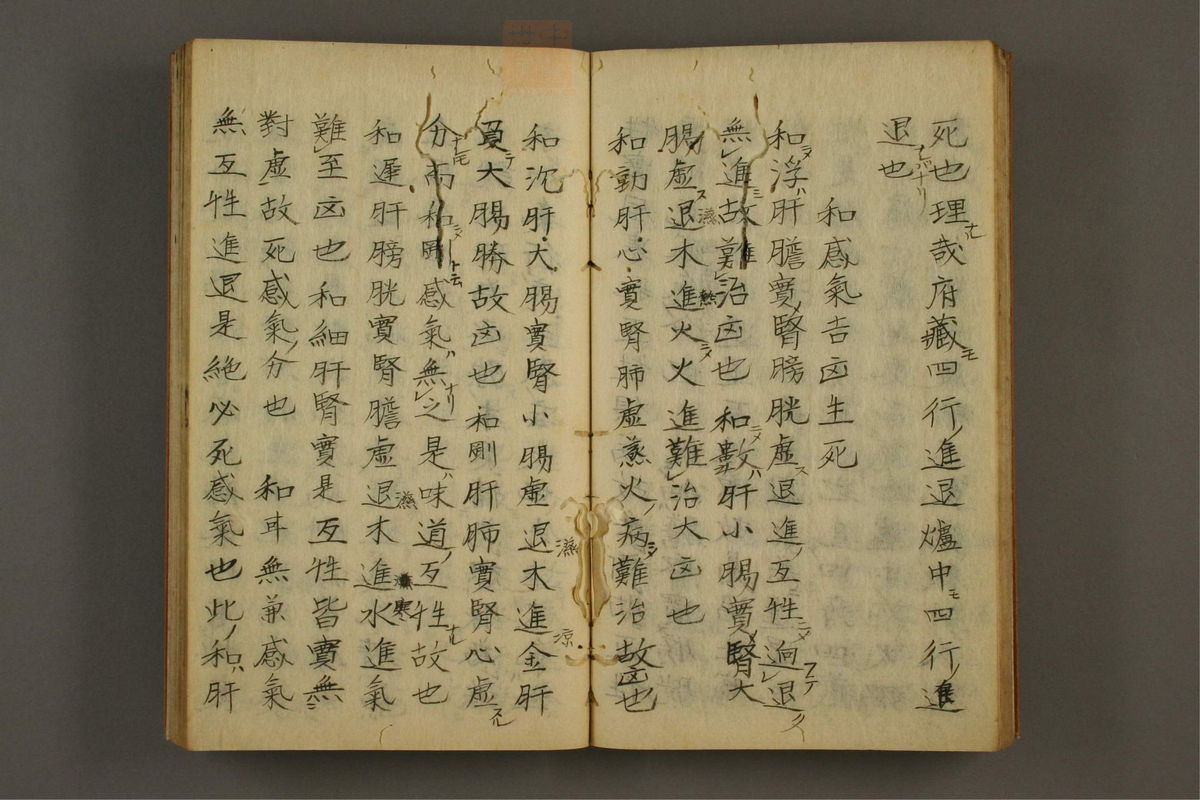 死也理哉府藏四行進退爐中四行進
退也
和感氣吉凶生死
和浮肝膽實腎膀胱虚退進互性逈退
無進故難治凶也 和數肝小腸實腎大
腸虚退木進火火進難治大凶也
和動肝心實腎肺虚蒸火病難治故凶也
和沉肝大腸實腎小腸虚退木進金肝
大腸勝故凶也和剛肝肺實腎心虚
分而和 感氣無之是味道互性故也
和遲肝膀胱實腎膽虚退木進水進氣
難至凶也 和細肝腎實是互性皆實無
對虚故死感氣分也 和 無兼感氣
無互性進退是絶必死感氣也此和肝